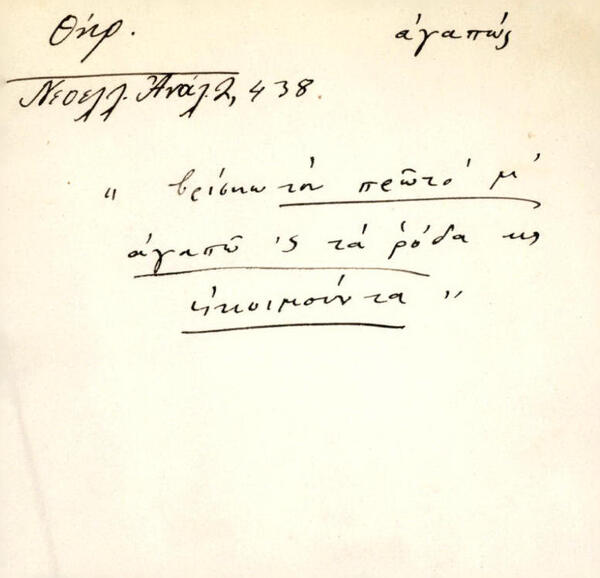 Θήρ. ἀγαπώς
Νεοελλ. Ἀνάλ. 2, 438.
" βρίσκω τὸν πρῶτό μ'
ἀγαπῶ 'ς τὰ ῥόδα κ
ἠκοιμούντα "